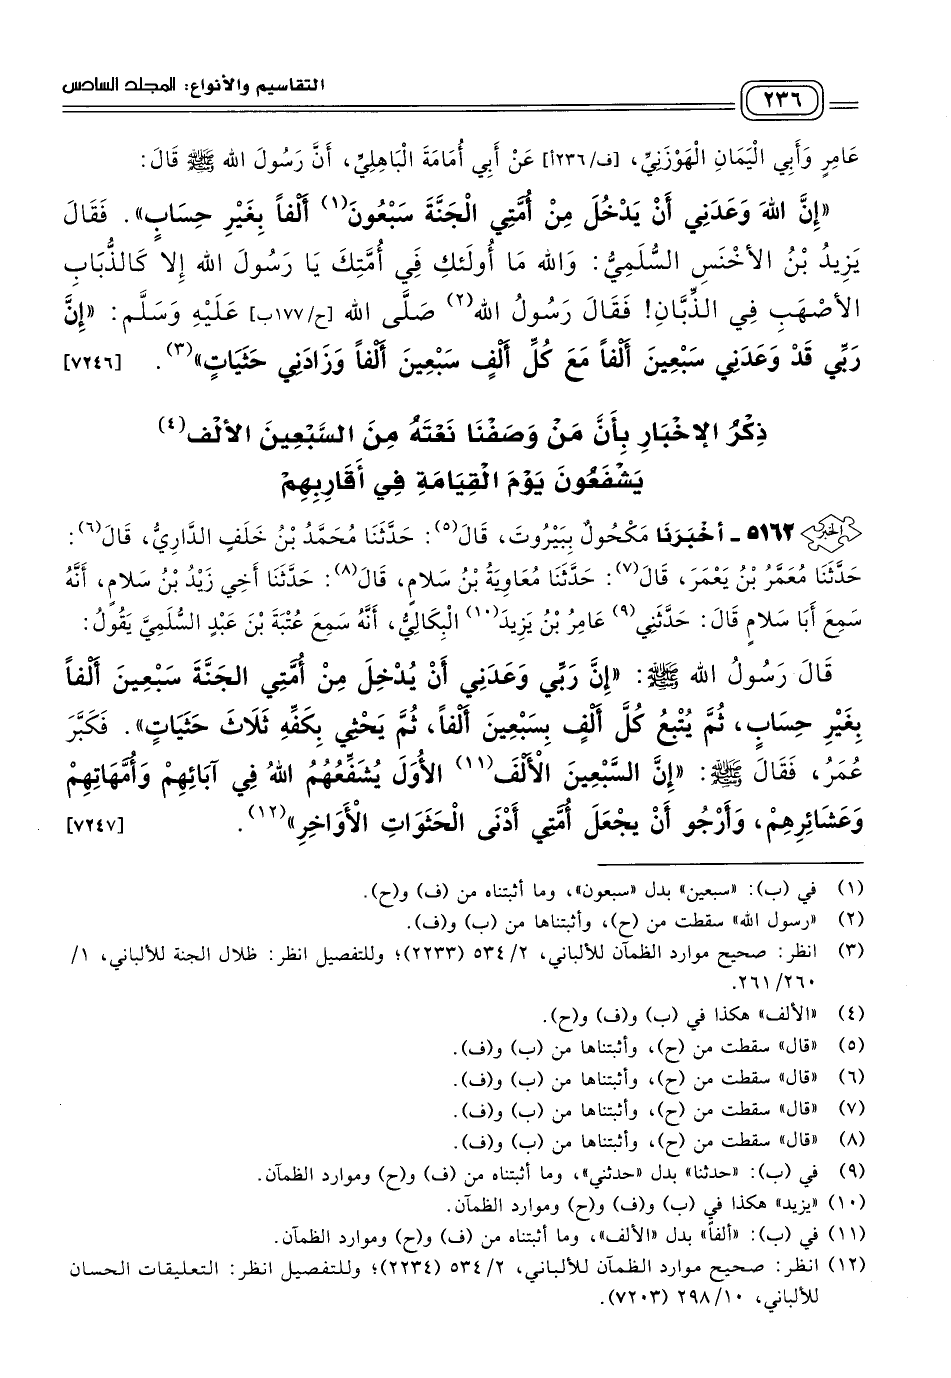 التقاسيم والأنواع: المجلد السادس
٢٣٦
عَامِرٍ وَأَبِي الْيَمَانِ الْهَوْزَنِيِّ، [ف/٢٣٦أ] عَنْ أَبِي أُمَامَةَ الْبَاهِلِيِّ، أَنَّ رَسُولَ الله ﷺ قَالَ:
«إِنَّ اللهَ وَعَدَنِي أَنْ يَدْخُلَ مِنْ أُمَّتِي الْجَنَّةَ سَبْعُونَ(١) أَلْفاً بِغَيْرِ حِسَابٍ». فَقَالَ
يَزِيدُ بْنُ الأَخْنَسِ السُّلَمِيُّ: وَالله مَا أُولَئِكَ فِي أُمَّتِكَ يَا رَسُولَ الله إِلا كَالذُّبَابِ
الأَصْهَبِ فِي الذِّبَّانِ! فَقَالَ رَسُولُ الله(٢) صَلَّى الله [ح/١٧٧ب] عَلَيْهِ وَسَلَّم: «إِنَّ
رَبِّي قَدْ وَعَدَنِي سَبْعِينَ أَلْفاً مَعَ كُلِّ أَلْفٍ سَبْعِينَ أَلْفاً وَزَادَنِي حَثَيَاتٍ»(٣). [٧٢٤٦]
ذِكْرُ الإِخْبَارِ بِأَنَّ مَنْ وَصَفْنَا نَعْتَهُ مِنَ السَّبْعِينَ الأَلْف(٤)
يَشْفَعُونَ يَوْمَ الْقِيَامَةِ فِي أَقَارِبِهِمْ
٥١٦٢ - أَخْبَرَنَا مَكْحُولٌ بِبَيْرُوتَ، قَالَ(٥): حَدَّثَنَا مُحَمَّدُ بْنُ خَلَفٍ الدَّارِيُّ، قَالَ(٦):
حَدَّثَنَا مُعَمَّرُ بْنُ يَعْمَرَ، قَالَ(٧): حَدَّثَنَا مُعَاوِيَةُ بْنُ سَلامٍ، قَالَ(٨): حَدَّثَنَا أَخِي زَيْدُ بْنُ سَلامٍ، أَنَّهُ
سَمِعَ أَبَا سَلامٍ قَالَ: حَدَّثَنِي(٩) عَامِرُ بْنُ يَزِيدَ(١٠) الْبِكَالِيُّ، أَنَّهُ سَمِعَ عُتْبَةَ بْنَ عَبْدٍ السُّلَمِيَّ يَقُولُ:
قَالَ رَسُولُ الله ﷺ: «إِنَّ رَبِّي وَعَدَنِي أَنْ يُدْخِلَ مِنْ أُمَّتِي الجَنَّةَ سَبْعِينَ أَلْفاً
بِغَيْرِ حِسَابٍ، ثُمَّ يُتْبِعُ كُلَّ أَلْفٍ بِسَبْعِينَ أَلْفاً، ثُمَّ يَحْثِي بِكَفِّهِ ثَلاَثَ حَثَيَاتٍ». فَكَبَّرَ
عُمَرُ، فَقَالَ ﷺ: «إِنَّ السَّبْعِينَ الْأَلْفَ(١١) الأُوَلَ يُشَفِّعُهُمُ اللهُ فِي آبَائِهِمْ وَأُمَّهَاتِهِمْ
وَعَشَائِرِهِمْ، وَأَرْجُو أَنْ يَجْعَلَ أُمَّتِي أَدْنَى الْحَثَوَاتِ الْأَوَاخِرِ»(١٢). [٧٢٤٧]
(١) في (ب): «سبعين» بدل «سبعون»، وما أثبتناه من (ف) و(ح).
(٢) «رسول الله» سقطت من (ح)، وأثبتناها من (ب) و(ف).
(٣) انظر: صحيح موارد الظمآن للألباني، ٢/ ٥٣٤ (٢٢٣٣)؛ وللتفصيل انظر: ظلال الجنة للألباني، ١/
٢٦٠/ ٢٦١.
(٤) «الألف» هكذا في (ب) و(ف) و(ح).
(٥) «قال» سقطت من (ح)، وأثبتناها من (ب) و(ف).
(٦) «قال» سقطت من (ح)، وأثبتناها من (ب) و(ف).
(٧) «قال» سقطت من (ح)، وأثبتناها من (ب) و(ف).
(٨) «قال» سقطت من (ح)، وأثبتناها من (ب) و(ف).
(٩) في (ب): «حدثنا» بدل «حدثني»، وما أثبتناه من (ف) و(ح) وموارد الظمآن.
(١٠) «يزيد» هكذا في (ب) و(ف) و(ح) وموارد الظمآن.
(١١) في (ب): «ألفاً» بدل «الألف»، وما أثبتناه من (ف) و(ح) وموارد الظمآن.
(١٢) انظر: صحيح موارد الظمآن للألباني، ٢/ ٥٣٤ (٢٢٣٤)؛ وللتفصيل انظر: التعليقات الحسان
للألباني، ١٠/ ٢٩٨ (٧٢٠٣).